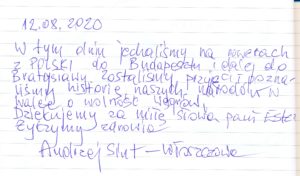 12.08.2020
W tym dniu jechaliśmy na rowerach
z Polski do Budapesztu i dalej do
Bratysławy. Zostaliśmy przyjęci i pozna-
liśmy historię naszych narodów w
walce o wolność Węgrów.
Dziękujemy za miłe słowa pani Ester
Życzymy zdrowia
Andrzej Slut - Włoszczowa